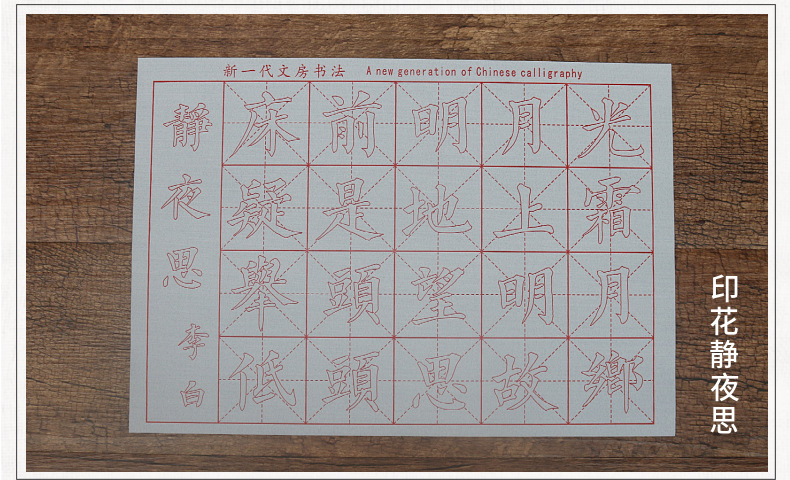 新一代文房书法 A new generation of Chinese calligraphy
靜夜思
李白
床前明月光
疑是地上霜
舉頭望明月
低頭思故鄉
印花静夜思